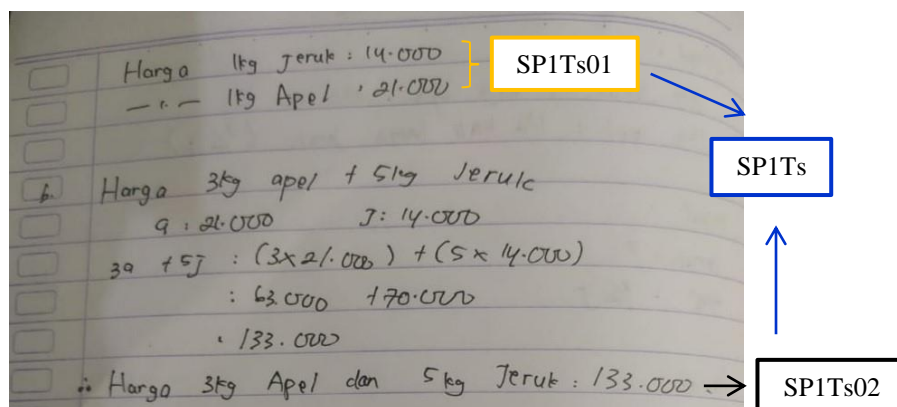 Harga 1kg Jeruk : 14.000
SP1Ts01
—"— 1kg Apel : 21.000
SP1Ts
b. Harga 3kg apel + 5kg Jeruk
a : 21.000 J : 14.000
3a + 5J : (3 x 21.000) + (5 x 14.000)
: 63.000 + 70.000
: 133.000
∴ Harga 3kg Apel dan 5kg Jeruk : 133.000
SP1Ts02